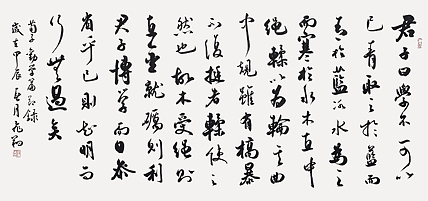 君子曰學不可以
已青取之於藍而
青於藍冰水為之
而寒於水木直中
繩輮以為輪其曲
中規雖有槁暴
不復挺者輮使之
然也故木受繩則
直金就礪則利
君子博學而日參
省乎己則知明而
行無過矣
荀子勸學篇節錄
歲在甲辰夏月